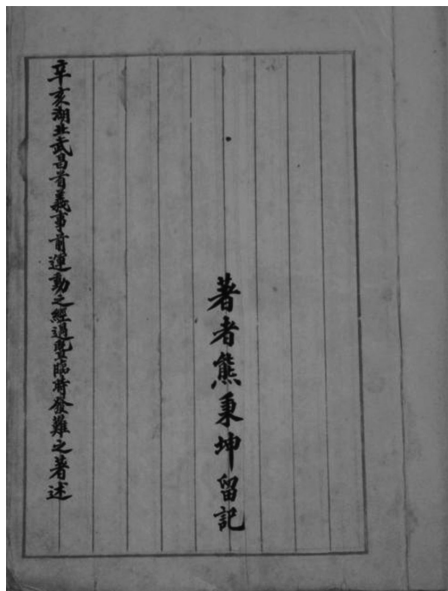 著者熊秉坤留記
辛亥湖北武昌首義事前運動之經過暨臨時發難之著述